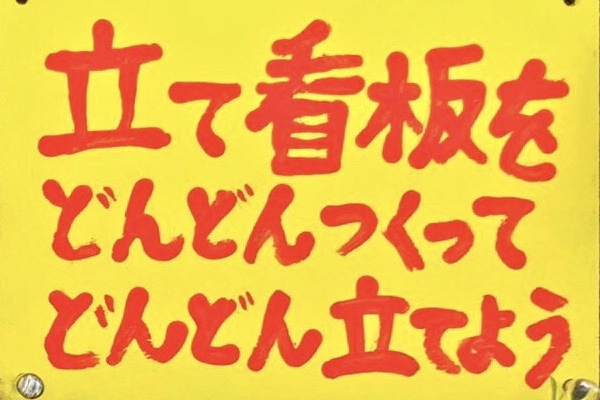 立て看板を
どんどんつくって
どんどん立てよう